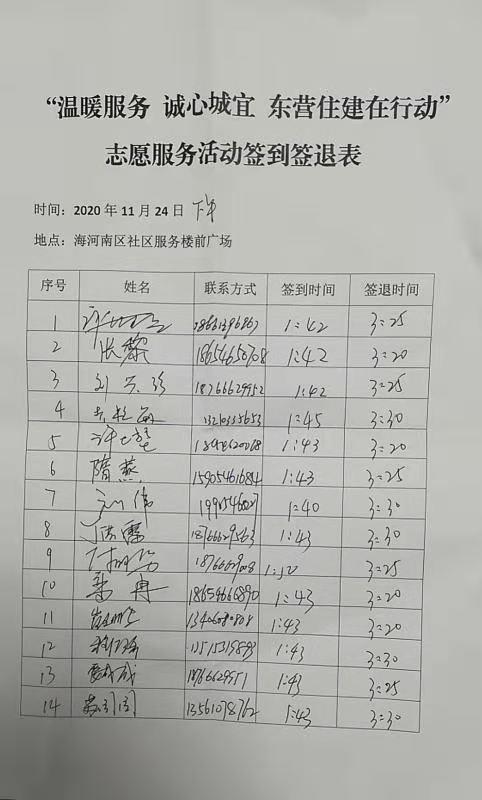 “温暖服务 诚心城宜 东营住建在行动”
志愿服务活动签到签退表
时间：2020 年 11 月 24 日 下午
地点：海河南区社区服务楼前广场
序号 姓名 联系方式 签到时间 签退时间
1 1:42 3:25
2 张黎 18654650708 1:42 3:20
3 刘兴珍 18766629952 1:42 3:25
4 13210335653 1:45 3:30
5 1:43 3:20
6 隋燕 15905461684 1:43 3:25
7 刘伟 1:40 3:30
8 18766629563 1:43 3:30
9 3:25
10 18654666890 1:43 3:20
11 13406080808 1:43 3:20
12 1:43 3:30
13 18766629551 1:43 3:25
14 13561078762 1:43 3:30